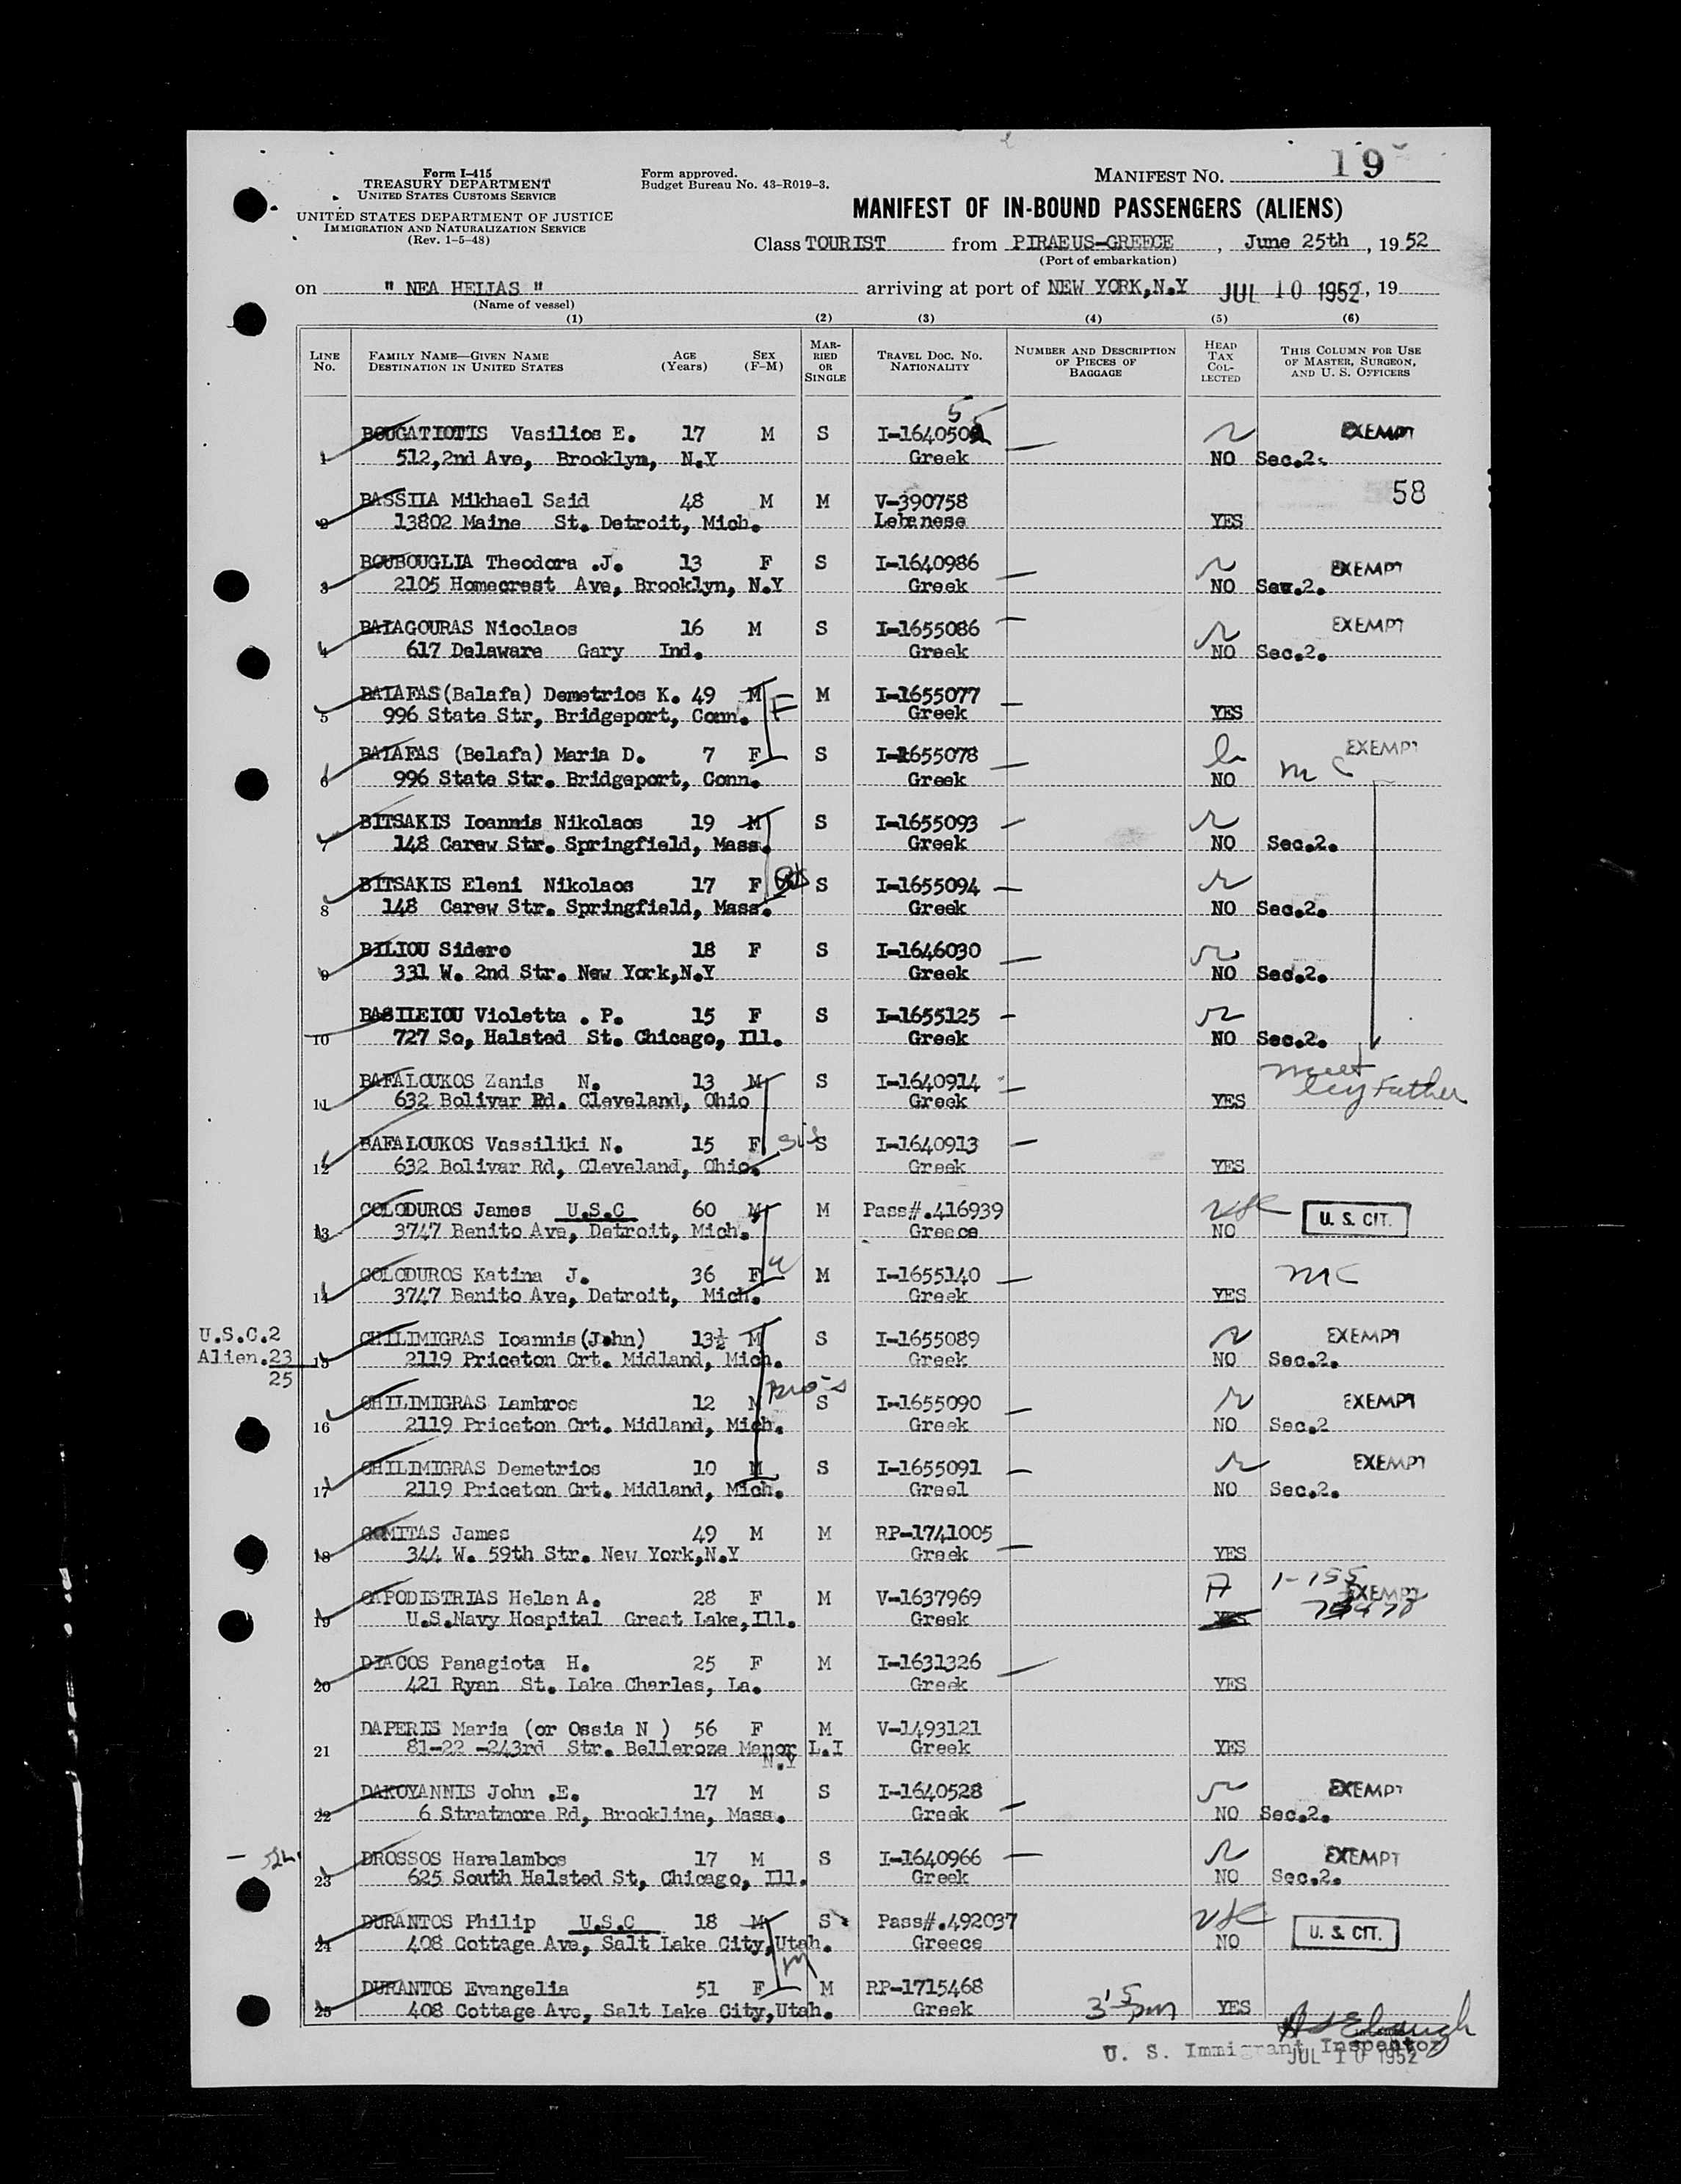 19
Form I-415
TREASURY DEPARTMENT
UNITED STATES CUSTOMS SERVICE
UNITED STATES DEPARTMENT OF JUSTICE
IMMIGRATION AND NATURALIZATION SERVICE
(Rev. 1-5-48)
Form approved.
Budget Bureau No. 43-R019-3.
MANIFEST NO.
MANIFEST OF IN-BOUND PASSENGERS (ALIENS)
Class TOURIST from PIRAEUS-GREECE, June 25th, 19 52
(Port of embarkation)
on " NEA HELIAS " arriving at port of NEW YORK,N.Y JUL 10 1952, 19
(Name of vessel)
(1) (2) (3) (4) (5) (6)
LINE No. FAMILY NAME—GIVEN NAME DESTINATION IN UNITED STATES AGE (Years) SEX (F-M) MARRIED OR SINGLE TRAVEL DOC. NO. NATIONALITY NUMBER AND DESCRIPTION OF PIECES OF BAGGAGE HEAD TAX COLLECTED THIS COLUMN FOR USE OF MASTER, SURGEON, AND U. S. OFFICERS
BOUGATIOTIS Vasilios E. 17 M S I-164050 5 EXEMPT
1 512,2nd Ave, Brooklyn, N.Y Greek NO Sec.2.
BASSILA Mikhael Said 48 M M V-390758 58
2 13802 Maine St. Detroit, Mich. Lebanese YES
BOUBOUGLIA Theodora .J. 13 F S I-1640986 EXEMPT
3 2105 Homecrest Ave, Brooklyn, N.Y Greek NO Sec.2.
BALAGOURAS Nicolaos 16 M S I-1655086 EXEMPT
4 617 Delaware Gary Ind. Greek NO Sec.2.
BALAFAS(Balafa) Demetrios K. 49 M M I-1655077
5 996 State Str, Bridgeport, Conn. F Greek YES
BALAFAS (Belafa) Maria D. 7 F S I-1655078 EXEMPT
6 996 State Str. Bridgeport, Conn. Greek NO m c
BITSAKIS Ioannis Nikolaos 19 M S I-1655093
7 148 Carew Str. Springfield, Mass. Greek NO Sec.2.
BITSAKIS Eleni Nikolaos 17 F S I-1655094
8 148 Carew Str. Springfield, Mass. Greek NO Sec.2.
BILIOU Sidero 18 F S I-1646030
9 331 W. 2nd Str. New York,N.Y Greek NO Sec.2.
BASILEIOU Violetta . P. 15 F S I-1655125
10 727 So, Halsted St. Chicago, Ill. Greek NO Sec.2.
BAFALOUKOS Zanis N. 13 M S I-1640914 meet
11 632 Bolivar Rd. Cleveland, Ohio Greek YES by Father
BAFALOUKOS Vassiliki N. 15 F sis S I-1640913
12 632 Bolivar Rd, Cleveland, Ohio. Greek YES
COLODUROS James U.S.C 60 M M Pass#.416939 USC U. S. CIT.
13 3747 Benito Ave, Detroit, Mich. Greece NO
COLODUROS Katina J. 36 F M I-1655140 mc
14 3747 Benito Ave, Detroit, Mich. Greek YES
U.S.C.2
Alien.23
25
CHILIMIGRAS Ioannis(John) 13½ M S I-1655089 EXEMPT
15 2119 Priceton Crt. Midland, Mich. Greek NO Sec.2.
CHILIMIGRAS Lambros 12 M Bro's S I-1655090 EXEMPT
16 2119 Priceton Crt. Midland, Mich. Greek NO Sec.2
CHILIMIGRAS Demetrios 10 M S I-1655091 EXEMPT
17 2119 Priceton Crt. Midland, Mich. Greel NO Sec.2.
COMITAS James 49 M M RP-1741005
18 344 W. 59th Str. New York,N.Y Greek YES
CAPODISTRIAS Helen A. 28 F M V-1637969 A 1-155 EXEMPT
19 U.S.Navy Hospital Great Lake,Ill. Greek YES
DIACOS Panagiota H. 25 F M I-1631326
20 421 Ryan St. Lake Charles, La. Greek YES
DAPERIS Maria (or Ossia N ) 56 F M V-1493121
21 81-22 -243rd Str. Belleroze Manor L.I N.Y Greek YES
DAKOYANNIS John .E. 17 M S I-1640528 EXEMPT
22 6 Stratmore Rd, Brookline, Mass. Greek NO Sec.2.
DROSSOS Haralambos 17 M S I-1640966 EXEMPT
23 625 South Halsted St, Chicago, Ill. Greek NO Sec.2.
DURANTOS Philip U.S.C 18 M S Pass#.492037 USC U. S. CIT.
24 408 Cottage Ave, Salt Lake City,Utah. m Greece NO
DURANTOS Evangelia 51 F M RP-1715468
25 408 Cottage Ave, Salt Lake City,Utah. Greek YES
U. S. Immigrant Inspector
JUL 10 1952